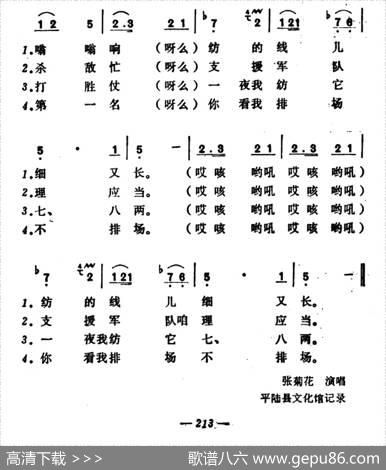 1 2 5 2·3 2 1 ♭7 2 1 2 1 ♭7 6
1.嗡嗡响(呀么)纺的线儿
2.杀敌忙(呀么)支援军队
3.打胜仗(呀么)一夜我纺它
4.第一名(呀么)你看我排场
5 · 1 5 — 2·3 2 1 2·3 2 1
1.细 又长。(哎咳 哟吼 哎咳 哟吼)
2.理 应当。(哎咳 哟吼 哎咳 哟吼)
3.七、 八两。(哎咳 哟吼 哎咳 哟吼)
4.不 排场。(哎咳 哟吼 哎咳 哟吼)
♭7 2 1 2 1 ♭7 6 5 · 1 5 —
1.纺的线 儿细 又长。
2.支援军 队咱理 应当。
3.一夜我纺 它七、 八两。
4.你看我排 场不 排场。
张菊花 演唱
平陆县文化馆记录
— 213 —
高清下载 >>>.
歌谱八六 www.gepu86.com